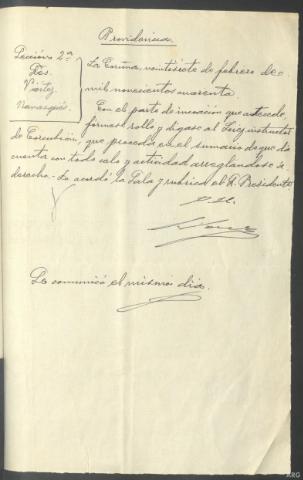 Providencia
Sección 2ª
Fes.
Viñez
Navasqués
La Coruña, veintisiete de febrero de
mil novecientos cuarenta
Con el parte de incoación que antecede,
fórmese rollo y dígase al Juez instructor
de Corcubión, que proceda en el sumario de que da
cuenta con todo celo y actividad arreglándose a
derecho - Lo acordó la Sala y rubrica el Sr. Presidente
Se comunicó el mismo día.
ARG